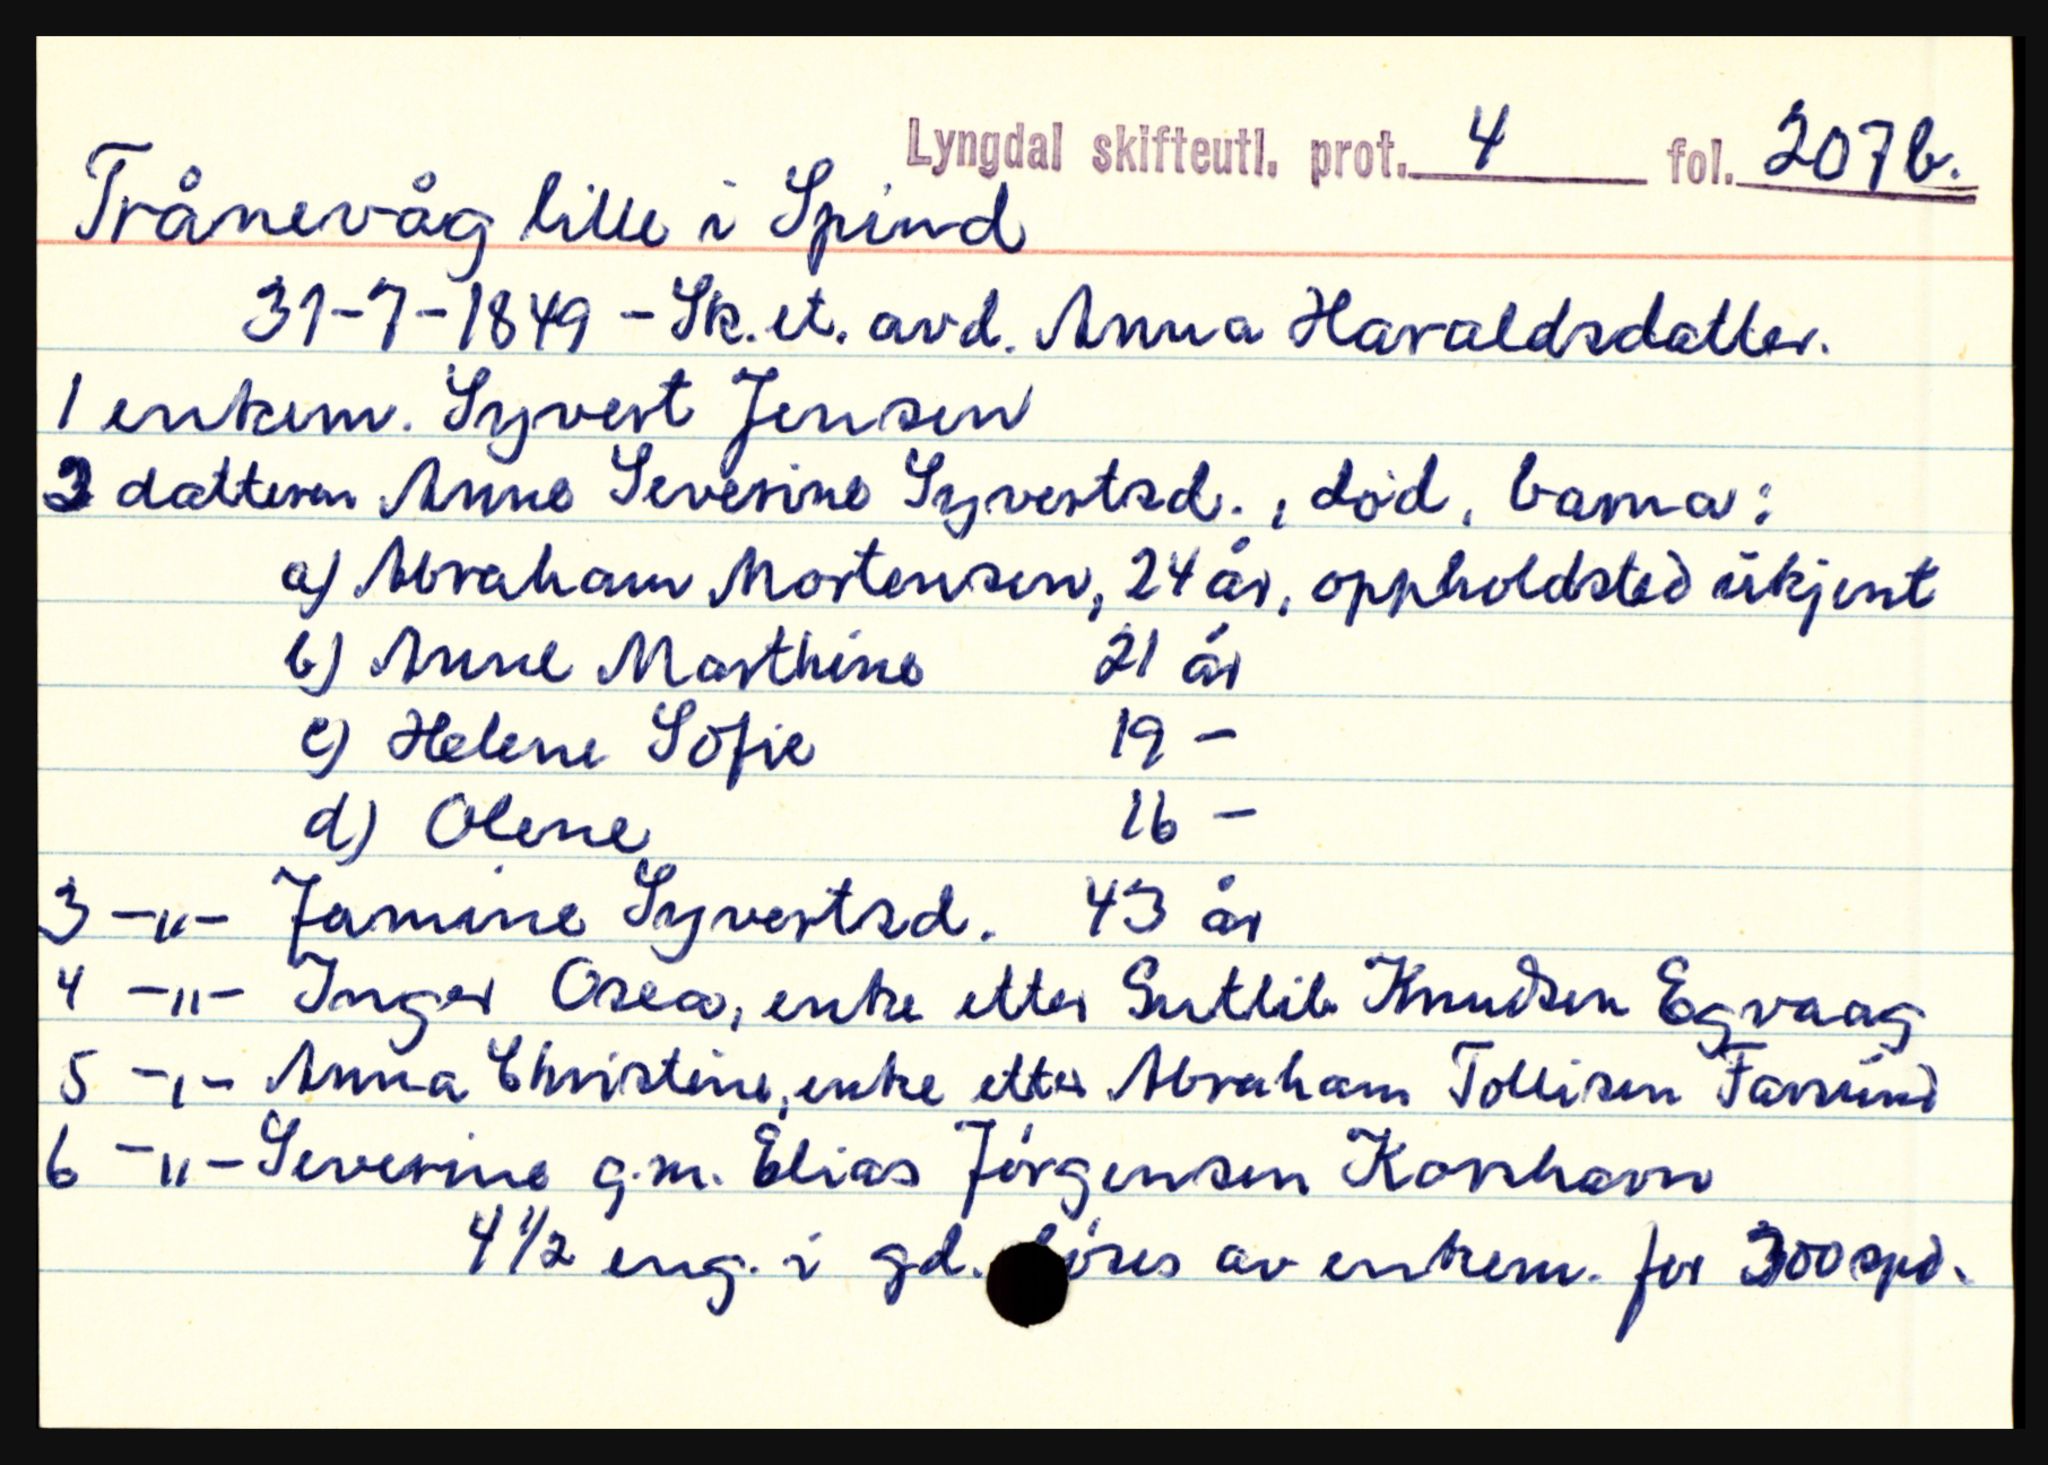 Lyngdal skifteutl. prot. 4 fol. 207b.
Trånevåg lille i Spind
31-7-1849 - Sk. et. avd. Anna Haraldsdatter.
1 enkem. Syvert Jensen
2 datteren Anne Severine Syvertsd., død, barna:
a) Abraham Mortensen, 24 år, oppholdsted ukjent
b) Anne Marthine 21 år
c) Helene Sofie 19 -
d) Olene 16 -
3 -"- Jamine Syvertsd. 43 år
4 -"- Inger Osea, enke etter Gutlib Knudsen Egvaag
5 -"- Anna Christine, enke etter Abraham Tollisen Farsund
6 -"- Severine g.m. Elias Jörgensen Korshavn
4 1/2 eng. i gd. av enkem. for 300 spd.